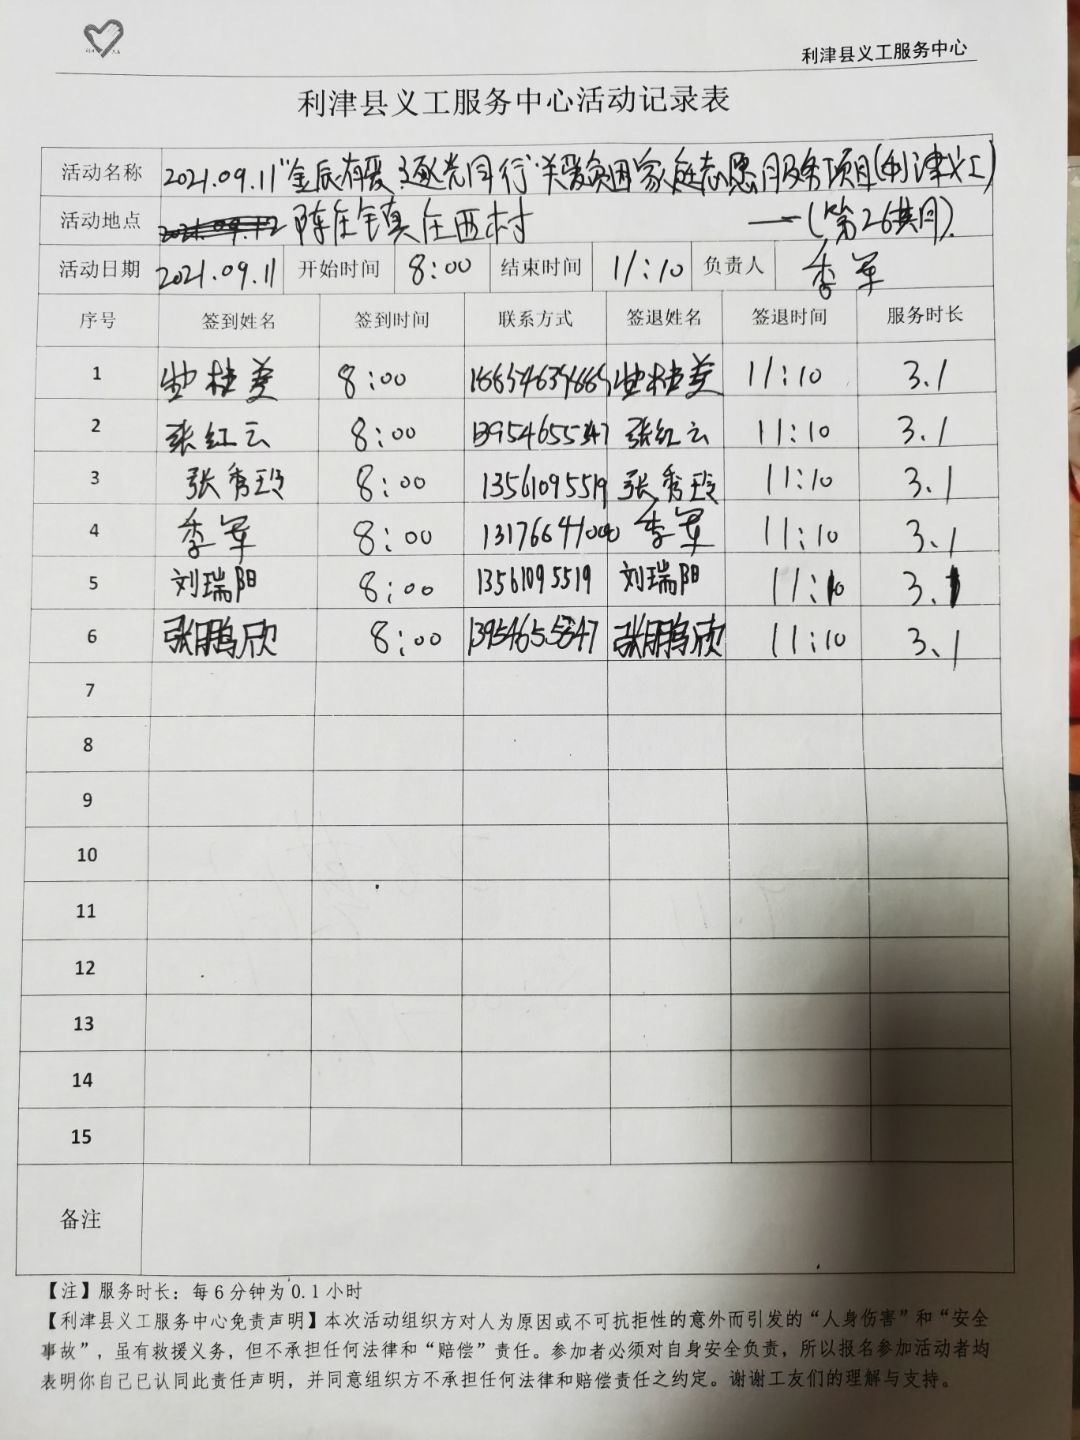 利津县义工服务中心
利津县义工服务中心活动记录表
活动名称 2021.09.11"金辰有爱 逐光同行"关爱贫困家庭志愿服务项目(利津义工)
活动地点 陈庄镇庄西村 —(第26期)
活动日期 2021.09.11 开始时间 8:00 结束时间 11:10 负责人 李军
序号 签到姓名 签到时间 联系方式 签退姓名 签退时间 服务时长
1 桂美 8:00 桂美 11:10 3.1
2 张红云 8:00 13954655347 张红云 11:10 3.1
3 张秀玲 8:00 13561095519 张秀玲 11:10 3.1
4 李军 8:00 李军 11:10 3.1
5 刘瑞阳 8:00 13561095519 刘瑞阳 11:10 3.1
6 张鹏欣 8:00 张鹏欣 11:10 3.1
7
8
9
10
11
12
13
14
15
备注
【注】服务时长：每6分钟为0.1小时
【利津县义工服务中心免责声明】本次活动组织方对人为原因或不可抗拒性的意外而引发的“人身伤害”和“安全
事故”，虽有救援义务，但不承担任何法律和“赔偿”责任。参加者必须对自身安全负责，所以报名参加活动者均
表明你自己已认同此责任声明，并同意组织方不承担任何法律和赔偿责任之约定。谢谢工友们的理解与支持。